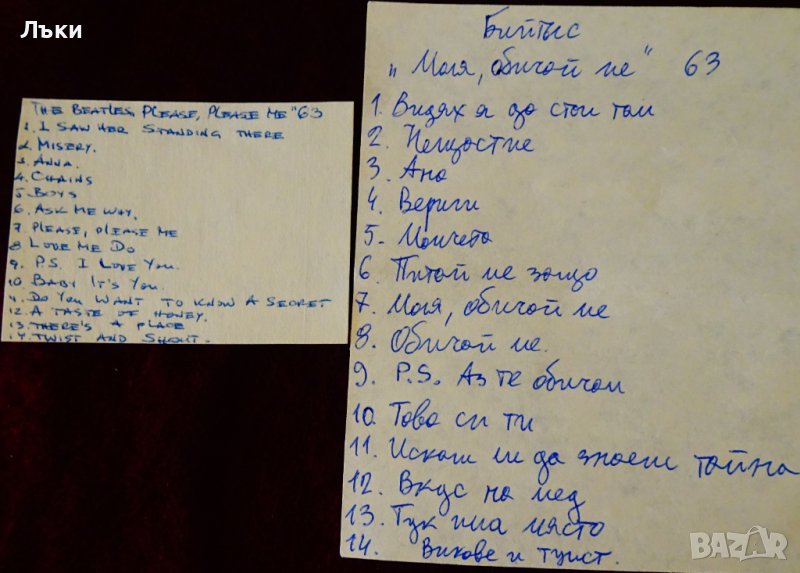 Лъки
THE BEATLES, PLEASE, PLEASE ME "63
1. I SAW HER STANDING THERE
2. MISERY.
3. ANNA.
4. CHAINS
5. BOYS
6. ASK ME WHY.
7. PLEASE, PLEASE ME
8. LOVE ME DO
9. P.S. I LOVE YOU.
10. BABY IT'S YOU.
11. DO YOU WANT TO KNOW A SECRET
12. A TASTE OF HONEY.
13. THERE'S A PLACE
14. TWIST AND SHOUT.
Бийтъс
„Моля, обичай ме" 63
1. Видях я да стои там
2. Нещастие
3. Ана
4. Вериги
5. Момчета
6. Питай ме защо
7. Моля, обичай ме
8. Обичай ме.
9. P.S. Аз те обичам
10. Това си ти
11. Искаш ли да знаеш тайна
12. Вкус на мед
13. Тук има място
14. Викове и туист.
BAZAR